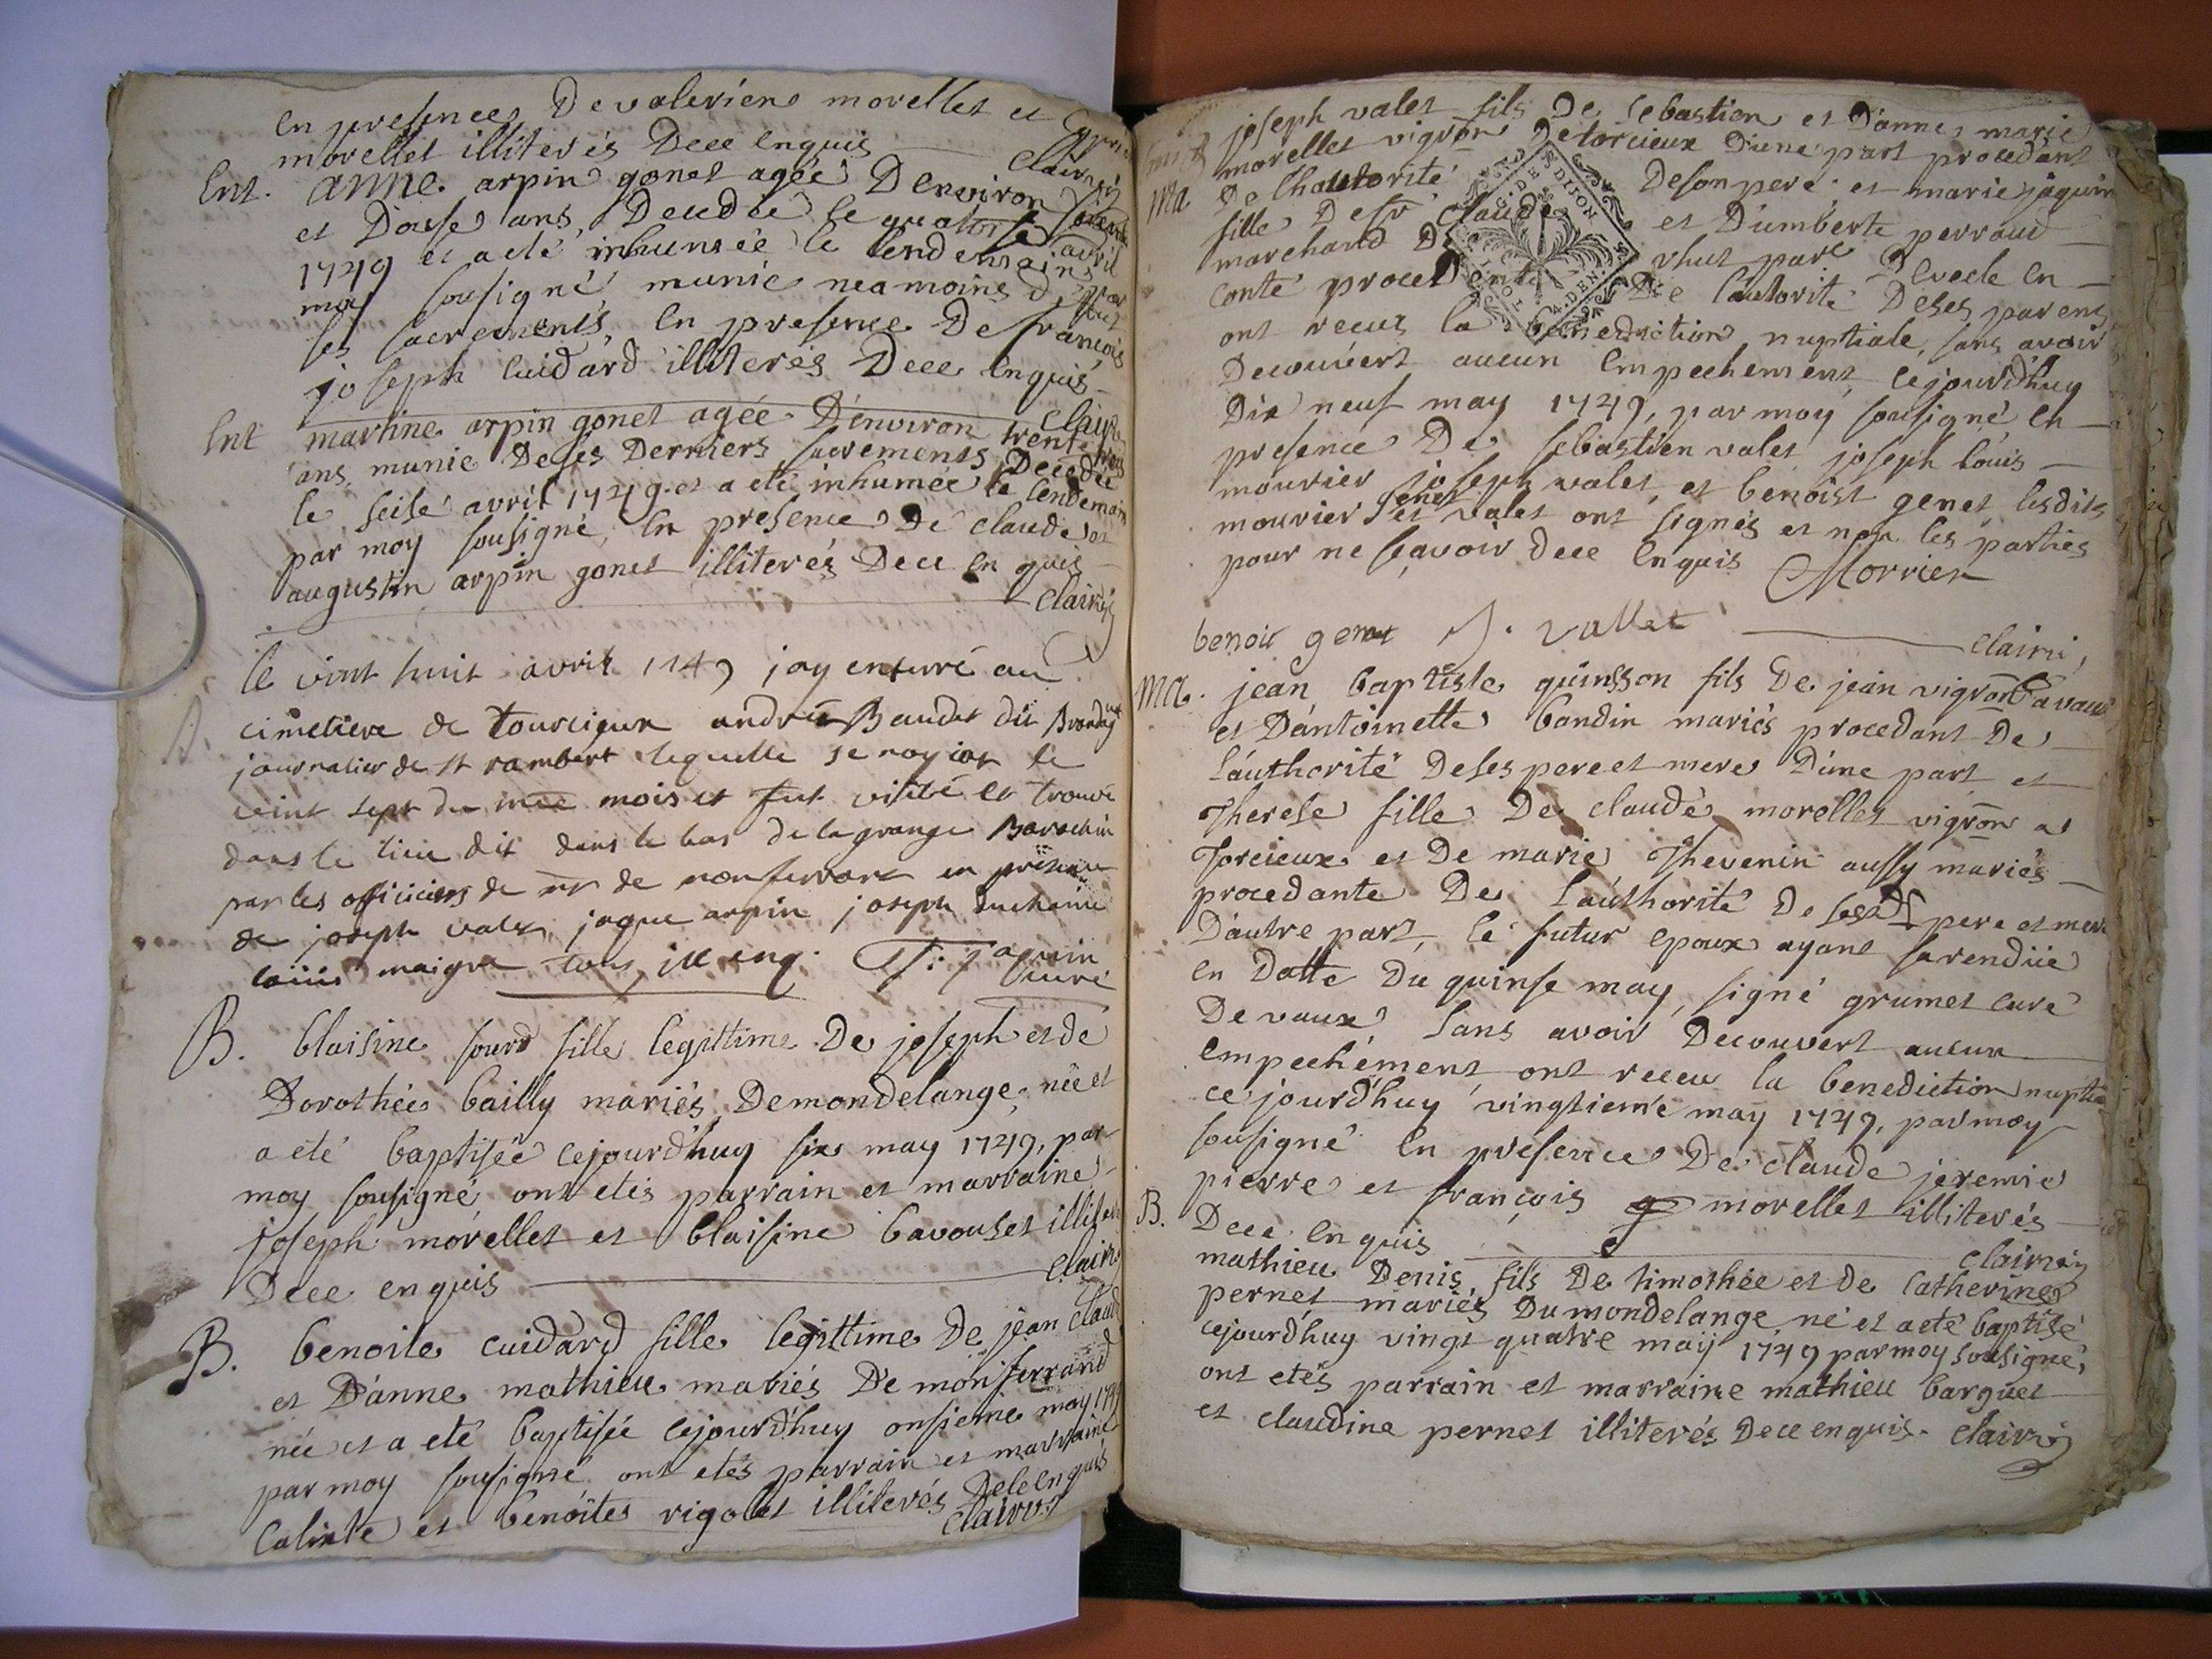 en presences De valeriens morellet et
morellet illiterés Dece enquis
clairvi
Ent. anne arpin gonet agée D'environ
et Douse ans, Decedée le quatorse avril
1749 et a eté inhumée le lendemain par
moy sousigné munie neamoins de tout
les sacrements, en presence De françois
joseph cuidard illiterés Dece enquis
clairvi
Ent martine arpin gonet agée D'environ trente trois
ans, munie De ses Derniers sacrements, Decedée
le seise avril 1749 et a eté inhumée le lendemain
par moy sousigné, en presence De claude et
augustin arpin gonet illiterés Dece enquis
clairvi
le vint huit avril 1749 jay enterré au
cimetiere de tourcieux andré Baudet dit
journalier de st rambert lequelle se noyiat le
vint sept du meme mois et fut visité et trouvé
dans le lieu dit dans le bas de la grange
par les officiers de mr de montferrant en présence
de joseph valet, jaque arpin joseph
louis maigre tous ill enq. jaquin
curé
B. blaisine sourd fille legittime De joseph et de
Dorothée bailly mariés Demondelange, née et
a eté baptisée cejourd'huy six may 1749, par
moy sousigné, ont etés parrain et marraine
joseph morellet et blaisine bavouset
Dece enquis clairvi
B. benoite cuidard fille legittime De jean claude
et D'anne mathieu mariés De monferrand
née et a eté baptisée cejourd'huy onsieme may 1749
par moy sousigné ont etés parrain et marraine
calixte et benoites rigolet illiterés Dece enquis
clairvi
joseph valet fils De sebastien et D'anne marie
morellet vigron De torcieux D'une part procedant
ma De l'hautorité De son pere et marie jaquin
fille De sr claude et D'umberte perraud
marchand
conté procedente De l'autorité De ses parens
ont receuz la benediction nuptiale, sans avoir
Decouvert aucun empechement, cejourd'huy
Dix neuf may 1749, par moy sousigné en
presence De sebastien valet joseph louis
mourier joseph valet, et benoist genet lesdits
mourier genet et valet ont signés et non les parties
pour ne sçavoir dece enquis Morrier
benoit genet J. vallet clairvi
ma. jean baptiste guinsson fils De jean vigron a vaux
et D'antoinette bandin mariés procedant De
l'authorité De ses pere et mere D'une part et
Therese fille De claude morellet vigron a
Torcieux et De marie Thevenin aussy mariés
procedante De l'authorité De sesd. pere et mere
D'autre part, le futur epoux ayant sa rendüe
en Datte Du quinse may, signé grumet curé
De vaux sans avoir Decouvert aucun
empechement ont receu la benediction nuptiale
ce jourd'huy vingtieme may 1749, par moy
sousigné en presence De claude jeremie
pierre et françois morellet illiterés
Dece enquis clairvi
B. mathieu Denis, fils De timothée et de Catherine
pernet mariés Du mondelange né et a eté baptisé
cejourd'huy vingt quatre maÿ 1749 par moy sousigné,
ont etés parrain et marraine mathieu barguet
et claudine pernet illiterés Dece enquis. clairvi